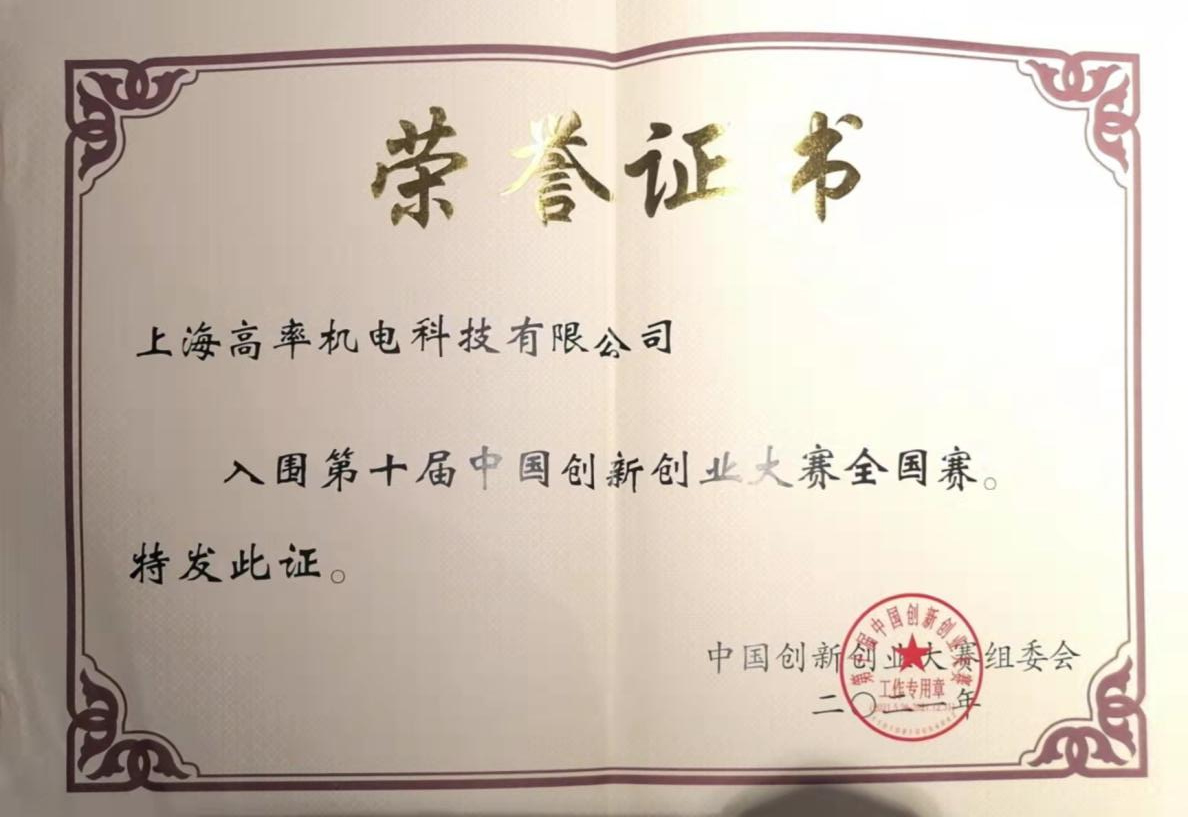 荣誉证书
上海高率机电科技有限公司
入围第十届中国创新创业大赛全国赛。
特发此证。
中国创新创业大赛组委会
二〇二一年
第十届中国创新创业大赛
工作专用章